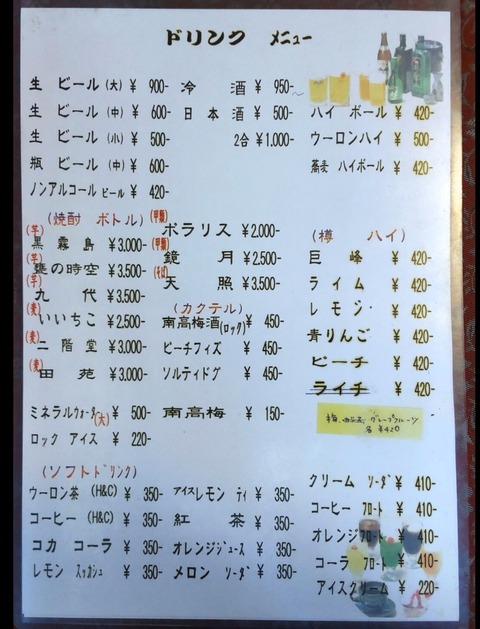 ドリンク メニュー
生 ビール (大) ¥ 900-
生 ビール (中) ¥ 600-
生 ビール (小) ¥ 500-
瓶 ビール (中) ¥ 600-
ノンアルコール ビール ¥ 420-
冷 酒 ¥ 950-~
日本酒 ¥ 500-
2合 ¥1.000-
ハイ ボール ¥ 420-
ウーロンハイ ¥ 500-
蕎麦 ハイボール ¥ 420-
(焼酎 ボトル)
(芋) 黒霧島 ¥3.000-
(芋) 甕の時空 ¥3.500-
(芋) 九代 ¥3.500-
(麦) いいちこ ¥2.500-
(麦) 二階堂 ¥3.000-
(麦) 田苑 ¥3.000-
ミネラルウォータ (大) ¥ 500-
ロック アイス ¥ 220-
(甲類) ポラリス ¥2.000-
(甲類) 鏡月 ¥2.500-
(そば) 天照 ¥3.500-
(カクテル)
南高梅酒(ロック) ¥ 450-
ピーチフィズ ¥ 450-
ソルティドグ ¥ 450-
南高梅 ¥ 150-
(樽 ハイ)
巨峰 ¥420-
ライム ¥420-
レモン ¥420-
青りんご ¥420-
ピーチ ¥420-
ライチ ¥420-
梅、グレープフルーツ
各 ¥420
(ソフトドリンク)
ウーロン茶 (H&C) ¥ 350-
コーヒー (H&C) ¥ 350-
コカ コーラ ¥ 350-
レモン スカッシュ ¥ 350-
アイスレモン ティ ¥ 350-
紅茶 ¥ 350-
オレンジジュース ¥ 350-
メロン ソーダ ¥ 350-
クリーム ソーダ ¥ 410-
コーヒー フロート ¥ 410-
オレンジフロート ¥ 410-
コーラ フロート ¥ 410-
アイスクリーム ¥ 220-